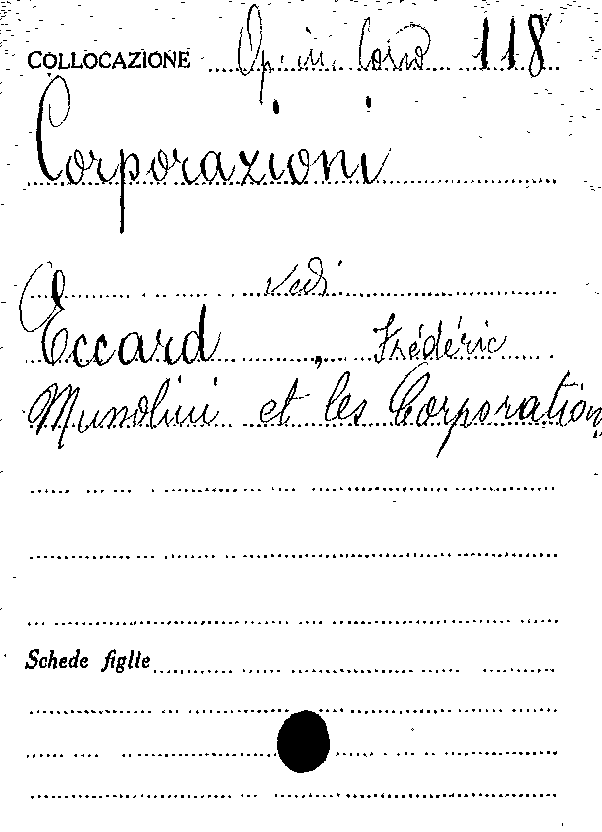 COLLOCAZIONE Op. in Corso 118
Corporazioni
vedi
Eccard, Frédéric
Mussolini et les Corporations
Schede figlie